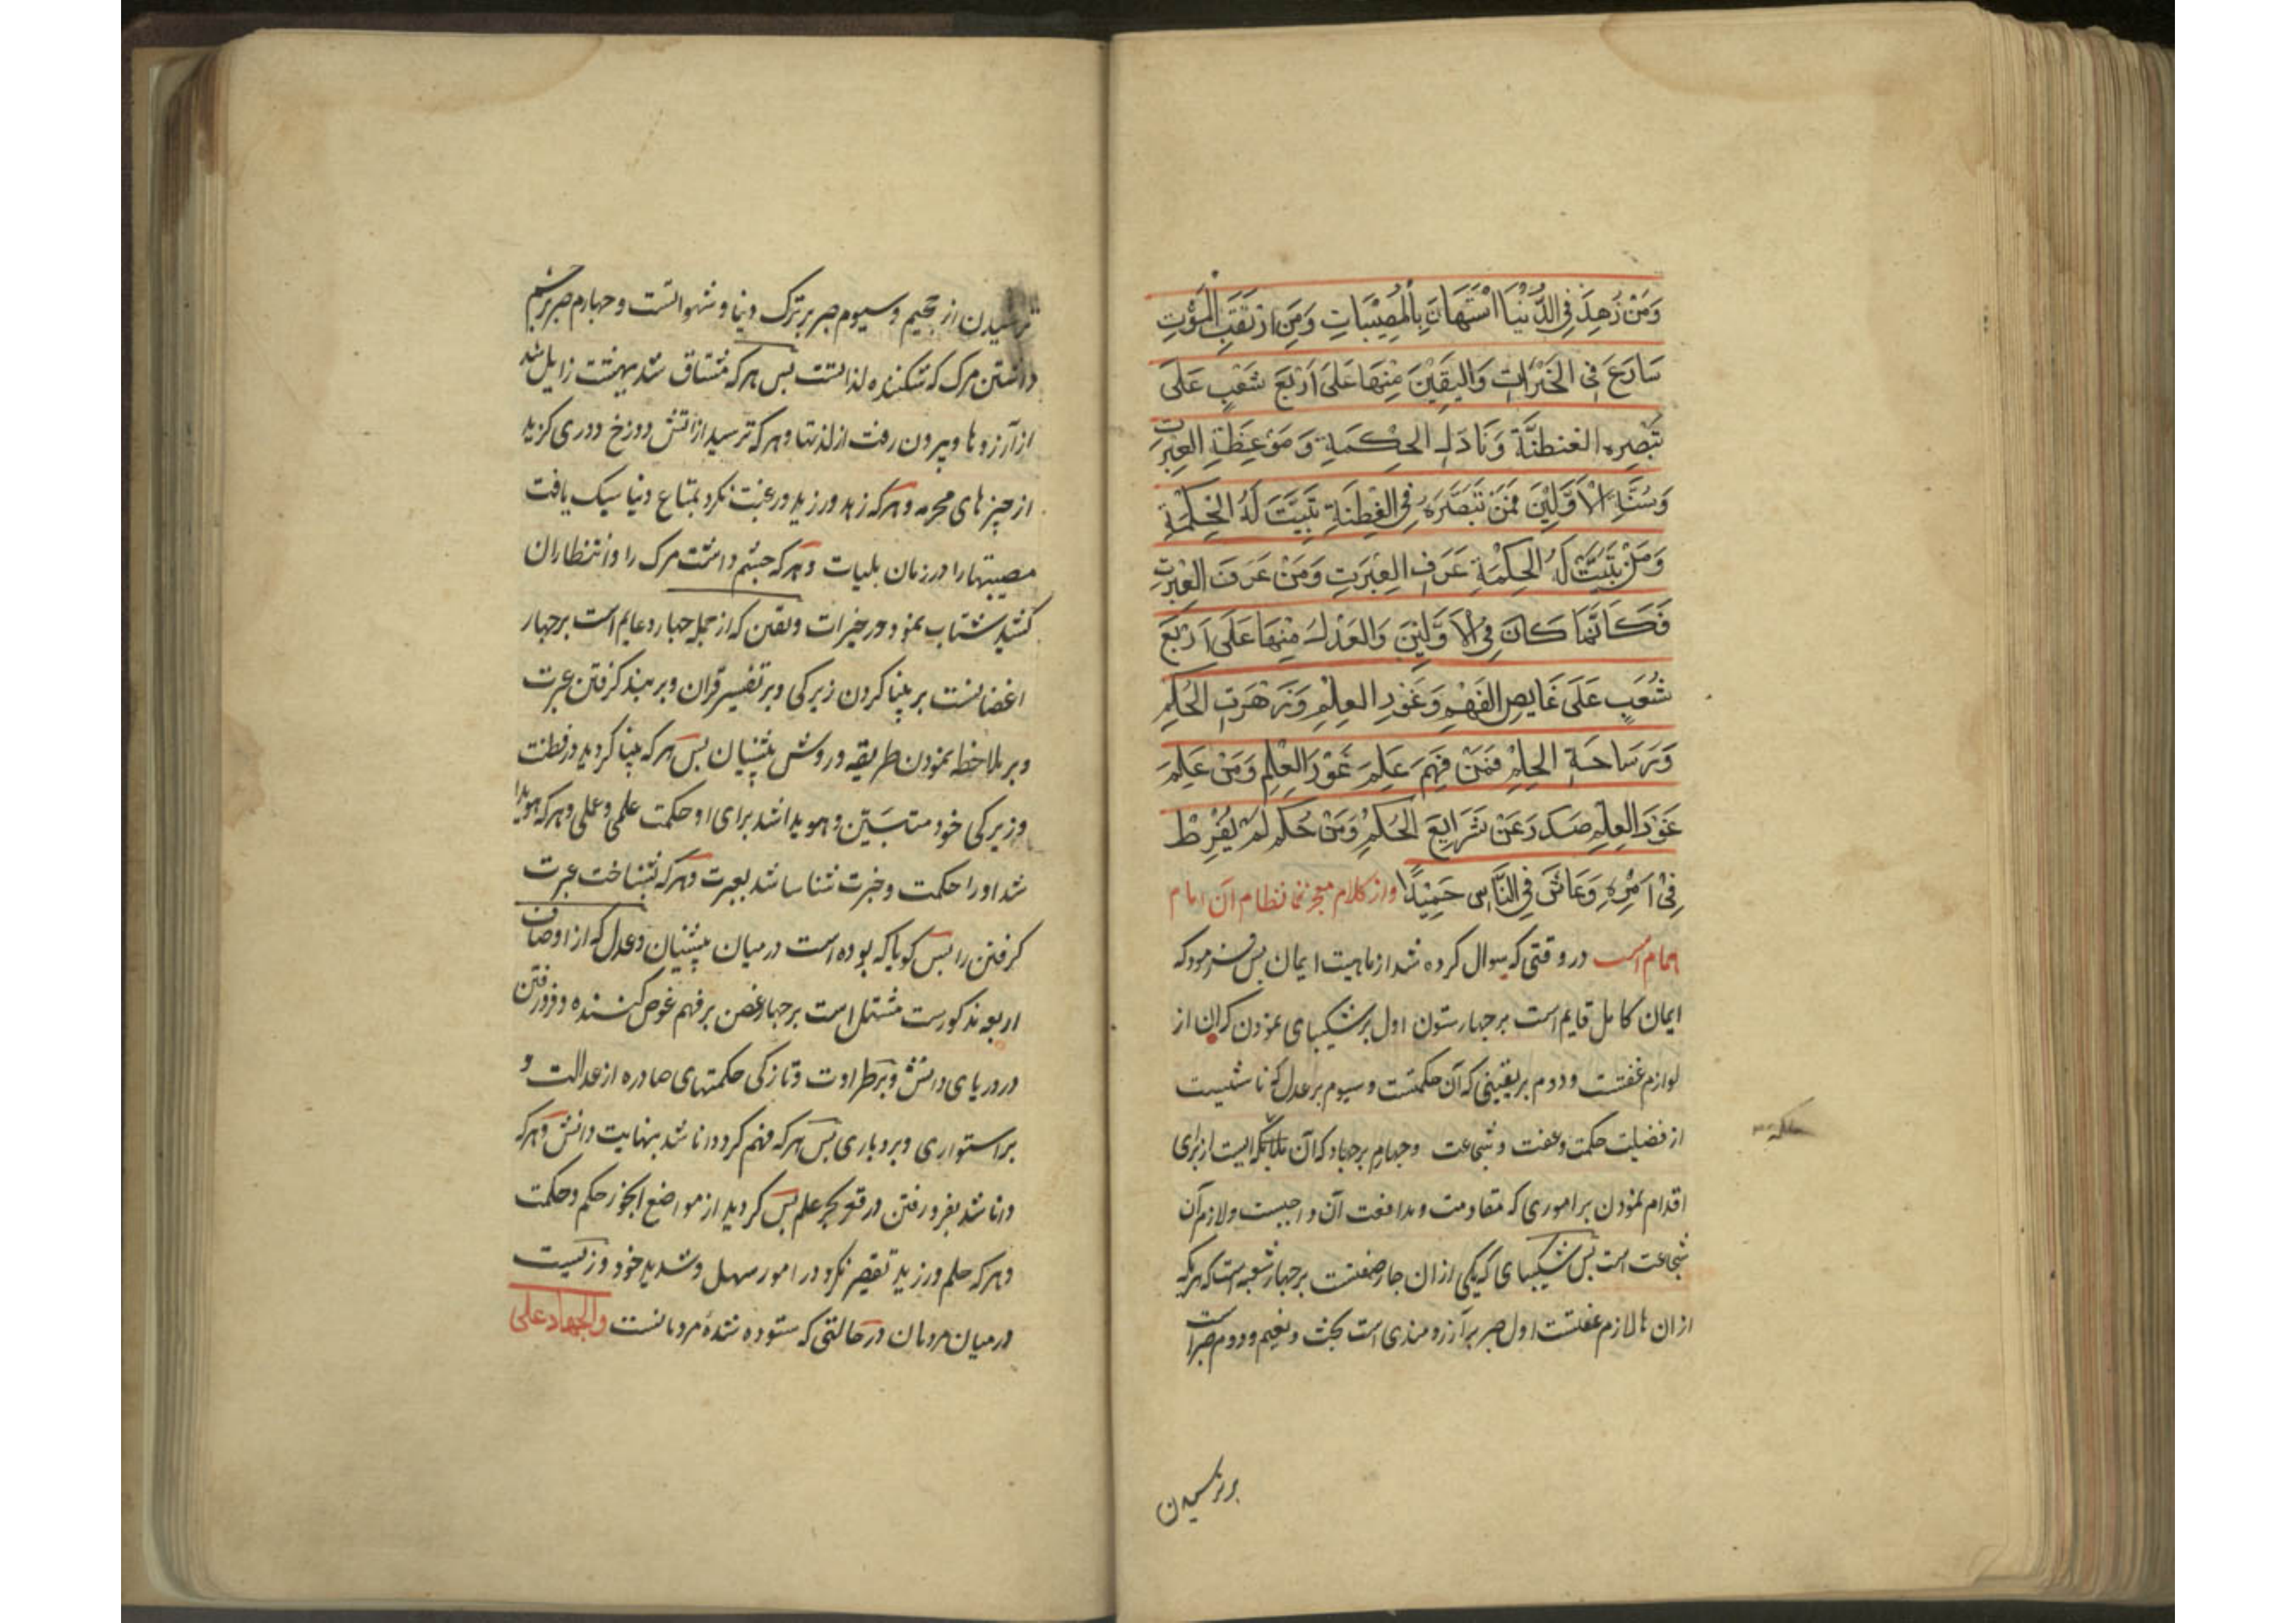 وَمَنْ زَهِدَ فِي الدُّنْيَا اسْتَهَانَ بِالْمُصِيبَاتِ وَمَنِ ارْتَقَبَ الْمَوْتِ
سَارَعَ فِي الخَيْرَاتِ وَاليَقِيْنَ مِنْهَا عَلَى اَرْبَعَ شُعَبٍ عَلَى
تَبْصِره الفطنَّة وَ الحِكْمَةِ وَ مَوْعِظَةِ العِبْرَتِ
وَسُنَّةِ الْاَوَّلِيْنَ فَمَنْ تَبَصَّرَهُ فِي الفِطْنَةِ تَبَيَّتَ لَهُ الْحِكْمَةِ
وَمَنْ تَبَيَّتَ لَهُ الحِكْمَةِ عَرَفَ العِبْرَتِ وَمَنْ عَرَفَ العِبْرَتِ
فَكَانَّمَا كَانَ فِي الْاَوَّلِيْنَ وَالعَدْلُ مِنْهَا عَلَى اَرْبَعَ
شُعَبٍ عَلَى غَايِصِ الفَهْمِ وَغَوْرِ العِلْمِ وَزَهْرَتِ الحُكْمِ
وَرَسَاحَةِ الحِلْمِ فَمَنْ فَهِمَ عَلِمَ غَوْرَ العِلْمِ وَمَنْ عَلِمَ
غَوْرَ العِلْمِ صَدَرَ عَنْ شَرَايِعَ الحُكْمِ وَمَنْ حُكْم لَمْ يُفَرِّطْ
فِيْ اَمْرِهِ وَعَاشَ فِي النَّاسِ حَمِيْدًا واز کلام معجز نظام آن امام
همام است در وقتی که سوال کرده شد از ماهیت ایمان پس فرمود که
ایمان کامل قایم است بر چهار ستون اول بر شکیبای نمودن که ان از
لوازم عفتت و دوم بر یقینی که آن حکمتت و سیوم بر عدل که ناشیست
از فضیلت حکمت و عفت و شجاعت و چهارم بر جهاد که آن ملکه ایست از برای
ملکه
اقدام نمودن بر اموری که مقاومت و مدافعت آن واجبست و لازم آن
شجاعت است پس شکیبای که یکی از ان چار صفتست بر چهار شعبه است که هر یک
از ان ها لازم عفتست اول صبر بر آرزومندی است بجنت و نعیم و دوم صبر است
بر ترسیدن
ترسیدن از جحیم و سیوم صبر بر ترک دنیا و شهواتست و چهارم صبر بر چشم
داشتن مرک که شکننده لذاتست پس هر که مشتاق شد ببهشت زایل شد
از آرزوها و بیرون رفت از لذتها و هر که ترسید از آتش دوزخ دوری کزید
از چیزهای محرمه و هر که زهد ورزید و رغبت نکرد بمتاع دنیا سبک یافت
مصیبتها را در زمان بلیات و هر که چشم داشت مرک را و انتظار ان
کشید شتاب نمود در خیرات و یقین که از جمله چهار دعایم است بر چهار
اغصانست بر بینا کردن زیرکی و بر تفسیر قران و بر پند کرفتن عبرت
و بر ملاحظه نمودن طریقه و روش پیشنیان پس هر که بینا کردید در فطنت
و زیرکی خود متبین و هویدا شد برای او حکمت علمی و عملی و هر که هویدا
شد او را حکمت و خبرت شناسا شد بعبرت و هر که بشناخت عبرت
کرفتن را پس کویا که بوده است در میان پیشنیان و عدل که از اوصاف
اربعه مذکورست مشتمل است بر چهار غصن بر فهم غوص کننده و فرو رفتن
در دریای دانش و بر طراوت و تازکی حکمتهای صادره از عدالت و
بر استواری و بردباری پس هر که فهم کرد دانا شد بنهایت دانش و هر که
دانا شد بفرو رفتن در قعر بحر علم پس کردید از مواضع حکم و حکمت
و هر که حلم ورزید تقصیر نکرد در امور سهل و شدید خود و زیست
در میان مردمان در حالتی که ستوده شدهٔ مردمانست والجهاد علی